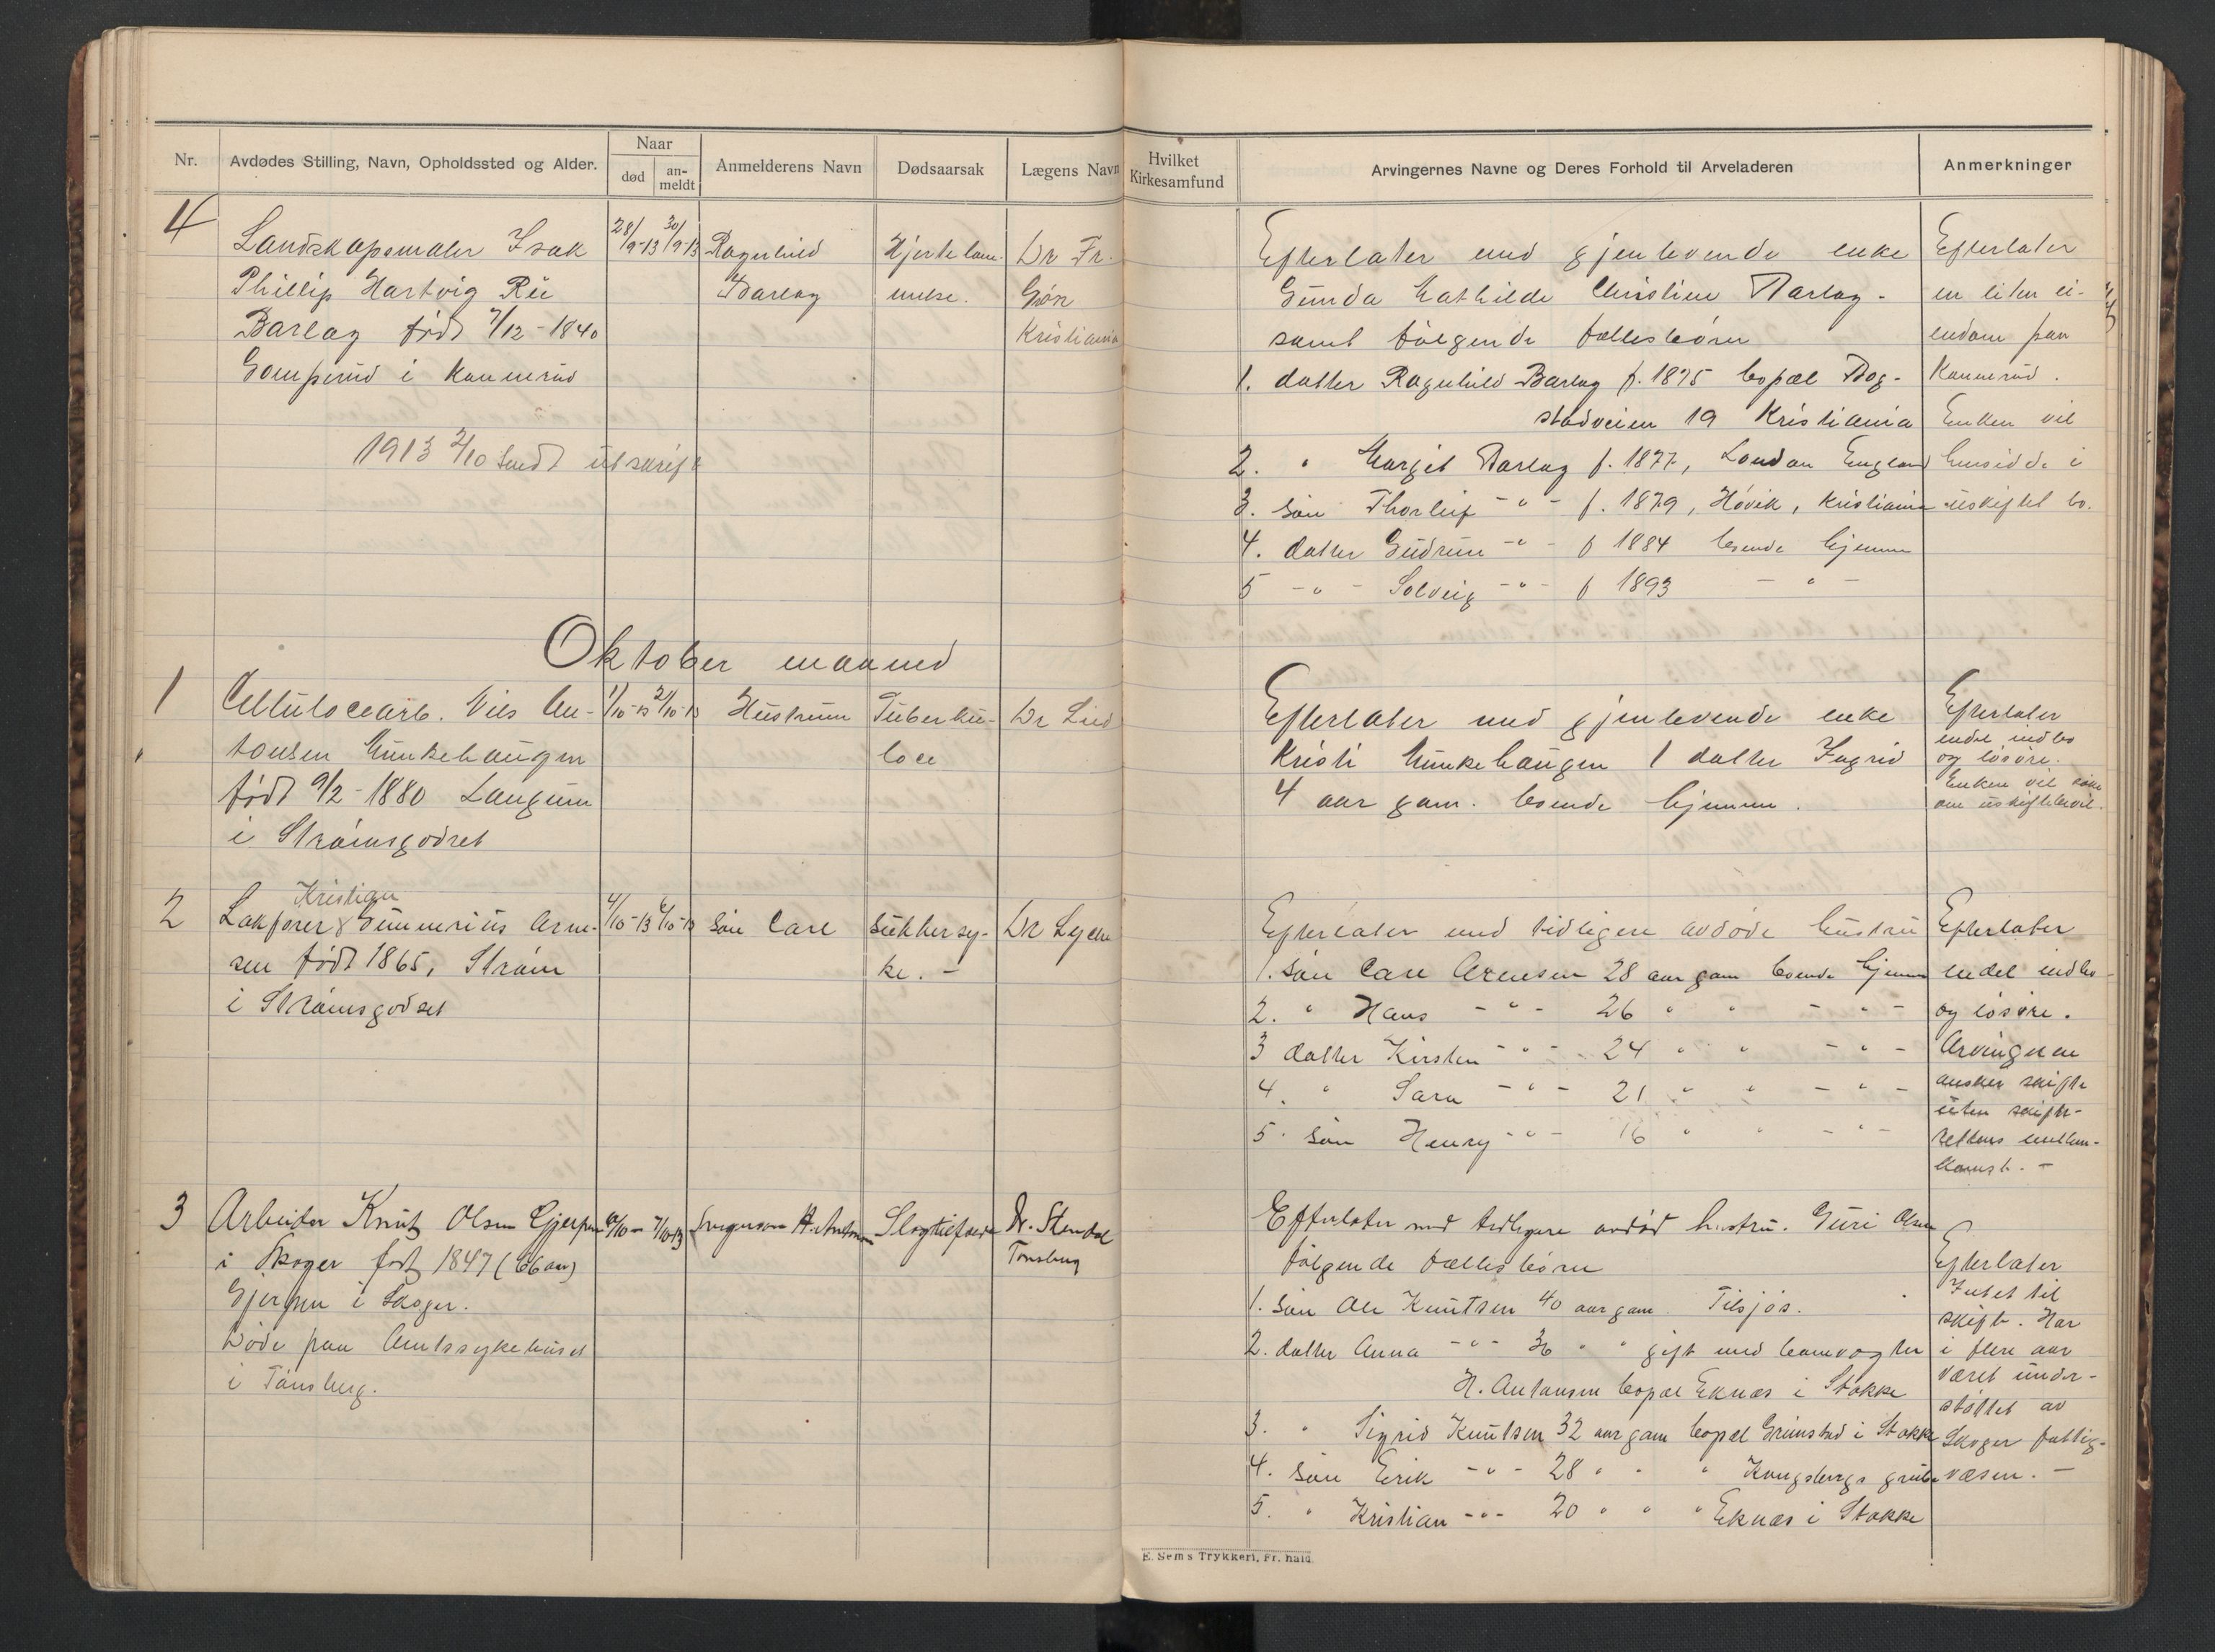 Nr.
Avdødes Stilling, Navn, Opholdssted og Alder.
Naar
død
an-
meldt
Anmelderens Navn
Dødsaarsak
Lægens Navn
Hvilket
Kirkesamfund
Arvingernes Navne og Deres Forhold til Arveladeren
Anmerkninger
4
Landskapsmaler Isak
Phillip Hartvig Rü
Barlag født 7/12-1840
i Konnerud
28/9-13
30/9-13
Ragnhild
Barlag
Hjertelam-
melse.
Dr Fr.
Grøn
Kristiania
1913 2/10 Sendt utskrift
Efterlater med gjenlevende enke
Gunda Mathilde Christine Barlag.
samt følgende fællesbørn
1. datter Ragnhild Barlag f. 1875 bopæl Bog-
stadveien 19 Kristiania
2. " Margit Barlag f. 1877, London England
3. søn Thorleif -"- f. 1879, Høvik, Kristiania
4. datter Gudrun -"- f 1884 boende hjemme
5 -"- Solveig -"- f 1893 -"-
Efterlater
en liten ei-
endom paa
Konnerud.
Enken vil
hensidde i
uskiftet bo.
Oktober maaned
1
Cellulocearb. Nils An-
tonsen Munkehaugen
født 9/2-1880 Langum
i Strømsgodset
1/10-13
2/10-13
Hustruen
Tuberku-
loce
Dr Lind
Efterlater med gjenlevende enke
Kristi Munkehaugen 1 datter Ingrid
4 aar gam. boende hjemme.
Efterlater
endel indbo
og løsøre.
Enken vil søke
om uskiftebevil.
2
Kristian
Lakforer Gunnerius Arne-
sen født 1865, Strøm
i Strømsgodset
4/10-13
6/10-13
Søn Carl
Sukkersy-
ke. -
Dr Lyche
Efterlater med tidligere avdøde hustru
1. Søn Carl Arnesen 28 aar gam boende hjemme
2. " Hans -"- 26 " " -"-
3 datter Kirsten -"- 24 " " -"-
4. " Sara -"- 21 " " -"-
5. Søn Henry -"- 16 " " -"-
Efterlater
endel indbo
og løsøre.
Arvingerne
ønsker skifte
uten skifte-
rettens mellem-
komst. -
3
Arbeider Knut Olsen Gjerpen
i Skoger født 1847 (66 aar)
Gjerpen i Skoger.
Døde paa Amtssykehuset
i Tønsberg.
7/10-13
Svigersøn H. Antonsen
Slagtilfælde
Dr. Stendal
Tønsberg
Efterlater med tidligere avdød hustru. Guri Olsen
følgende fællesbørn
1. Søn Ole Knutsen 40 aar gam. Tilsjøs.
2. datter Anna -"- 36 " " gift med banevogter
H. Antonsen bopæl Eknæs i Stokke
3. " Sigrid Knutsen 32 aar gam bopæl Grimstad i Stokke
4. Søn Erik -"- 28 " " " Kongsbergs grube
5. " Kristian -"- 20 " " " Eknæs i Stokke
Efterlater
Intet til
skifte. Har
i flere aar
været under-
støttet av
Skoger fattig-
væsen. -
E. Sem's Trykkeri, Fr.hald.